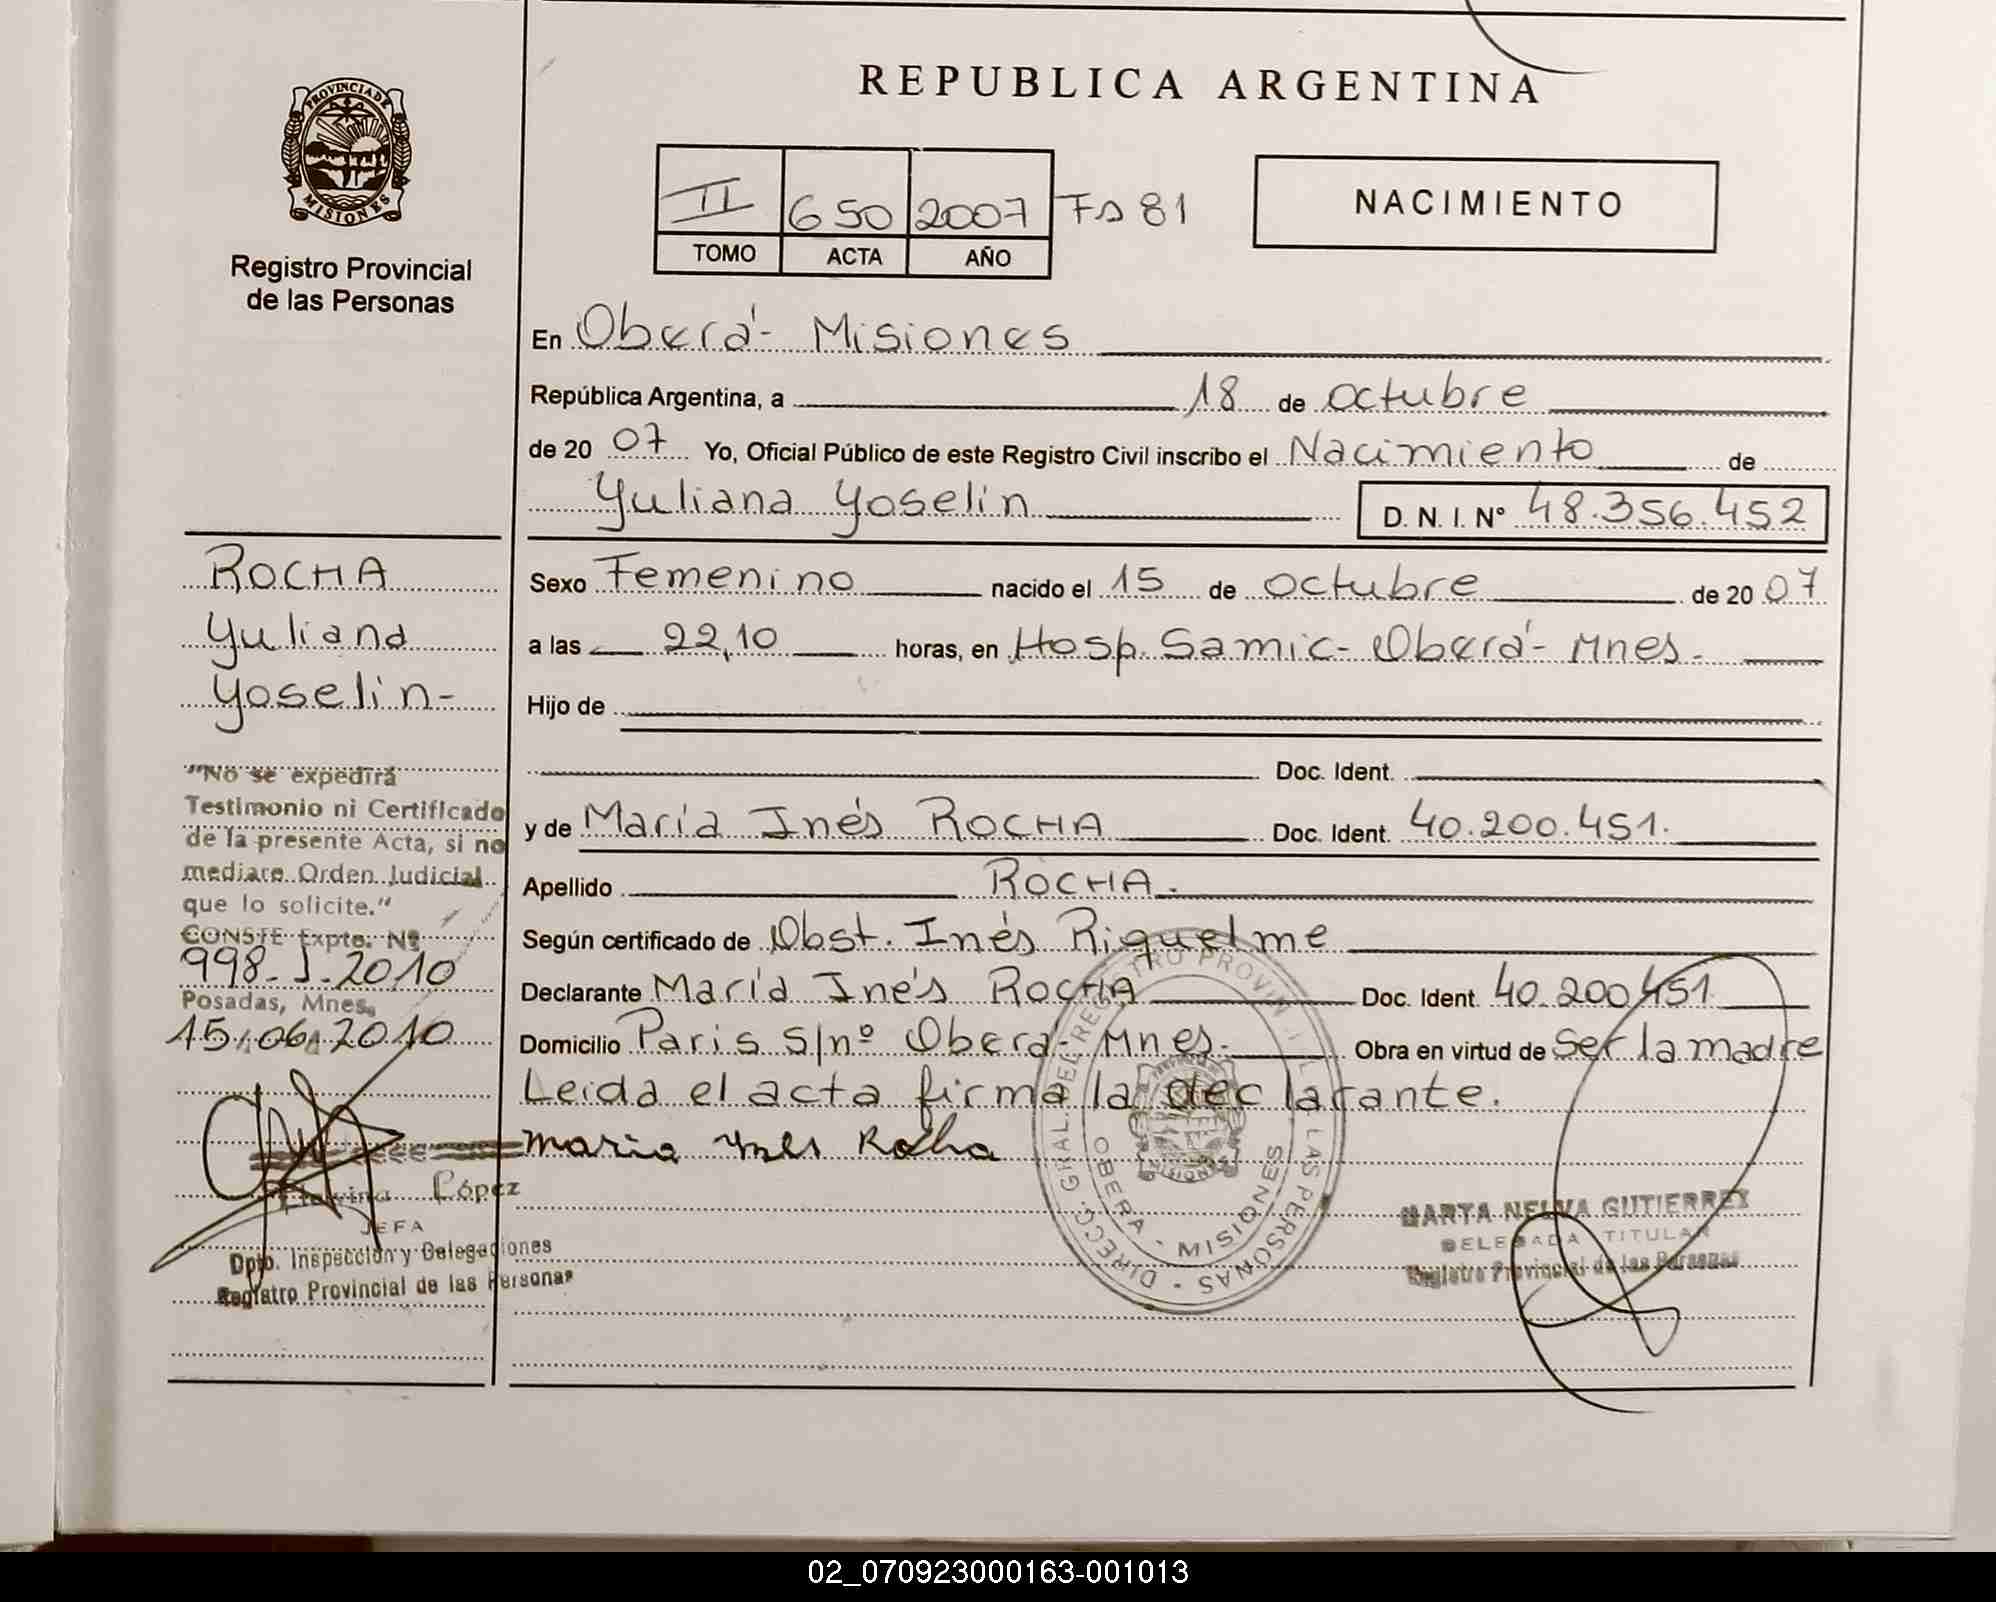 REPUBLICA ARGENTINA
PROVINCIA DE
MISIONES
Registro Provincial
de las Personas
II 650 2007 Fs 81
TOMO ACTA AÑO
NACIMIENTO
En Oberá - Misiones
República Argentina, a 18 de octubre
de 20 07 Yo, Oficial Público de este Registro Civil inscribo el Nacimiento de
Yuliana Yoselin D. N. I. Nº 48.356.452
Sexo Femenino nacido el 15 de octubre de 20 07
a las 22,10 horas, en Hosp. Samic - Oberá - Mnes.
Hijo de
Doc. Ident.
y de María Inés ROCHA Doc. Ident. 40.200.451.
Apellido ROCHA.
Según certificado de Obst. Inés Riquelme
Declarante María Inés ROCHA Doc. Ident. 40.200.451
Domicilio Paris s/nº Oberá - Mnes. Obra en virtud de ser la madre
Leida el acta firma la declarante.
Maria Ines Rocha
ROCHA
Yuliana
Yoselin-
"No se expedirá
Testimonio ni Certificado
de la presente Acta, si no
mediare Orden Judicial
que lo solicite."
CONSTE Expte. Nº
998-J-2010
Posadas, Mnes.
15/06/2010
López
JEFA
Dpto. Inspección y Delegaciones
Registro Provincial de las Personas
DIRECC. GRAL DEL REGISTRO PROVINCIAL DE LAS PERSONAS
OBERA - MISIONES
MISIONES
MARTA NELVA GUTIERREZ
DELEGADA TITULAR
Registro Provincial de las Personas
02_070923000163-001013